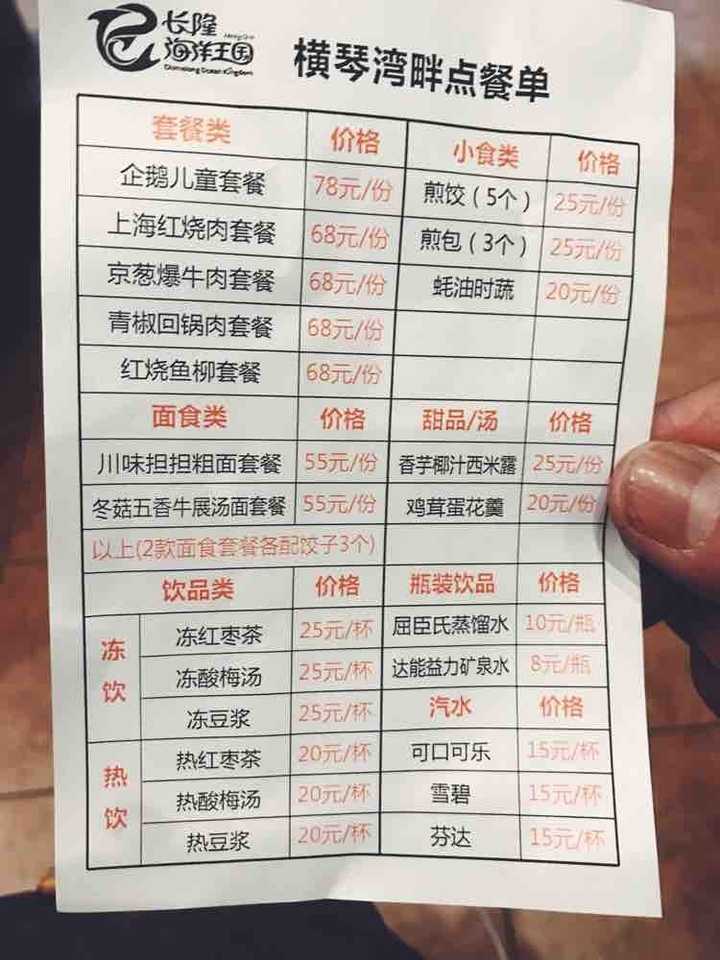 长隆
海洋王国
Chimelong Ocean Kingdom
横琴湾畔点餐单
套餐类 价格 小食类 价格
企鹅儿童套餐 78元/份 煎饺（5个） 25元/份
上海红烧肉套餐 68元/份 煎包（3个） 25元/份
京葱爆牛肉套餐 68元/份 蚝油时蔬 20元/份
青椒回锅肉套餐 68元/份
红烧鱼柳套餐 68元/份
面食类 价格 甜品/汤 价格
川味担担粗面套餐 55元/份 香芋椰汁西米露 25元/份
冬菇五香牛展汤面套餐 55元/份 鸡茸蛋花羹 20元/份
以上(2款面食套餐各配饺子3个)
饮品类 价格 瓶装饮品 价格
冻饮 冻红枣茶 25元/杯 屈臣氏蒸馏水 10元/瓶
冻酸梅汤 25元/杯 达能益力矿泉水 8元/瓶
冻豆浆 25元/杯 汽水 价格
热饮 热红枣茶 20元/杯 可口可乐 15元/杯
热酸梅汤 20元/杯 雪碧 15元/杯
热豆浆 20元/杯 芬达 15元/杯